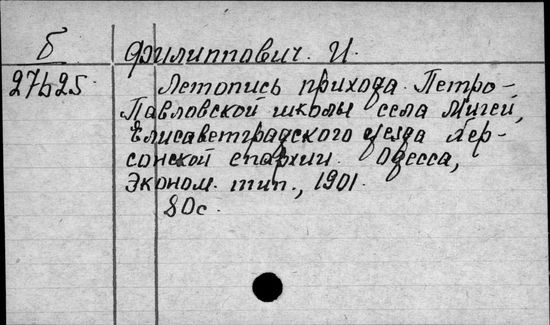 Б Филиппович. И.
27425 Летопись прихода Петро-
Павловской школы села Мигеи,
Елисаветградского уезда Хер-
сонской епархии. Одесса,
Эконом. тип., 1901.
80с.